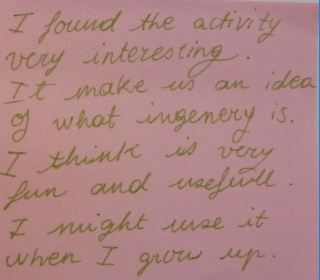 I found the activity
very interesting.
It make us an idea
of what ingenery is.
I think is very
fun and usefull.
I might use it
when I grow up.